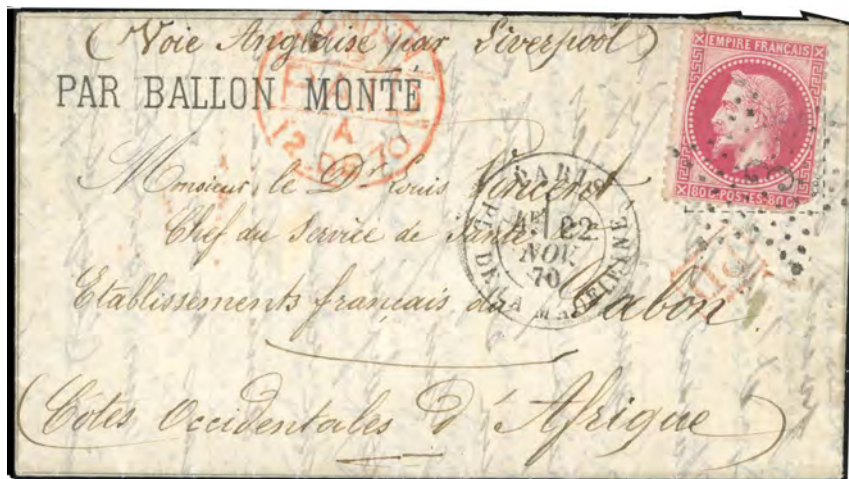 (Voie Anglaise par Liverpool)
PAR BALLON MONTÉ
EMPIRE FRANÇAIS
80 C POSTES 80 C
LONDON
PAID
A
12 DE 70
Monsieur le Dr. Louis Vincent
Chef du Service de Santé
PARIS
22
NOV
70
PL. DE LA MADELEINE
PD
Etablissements français du Gabon.
(Côtes Occidentales d'Afrique)